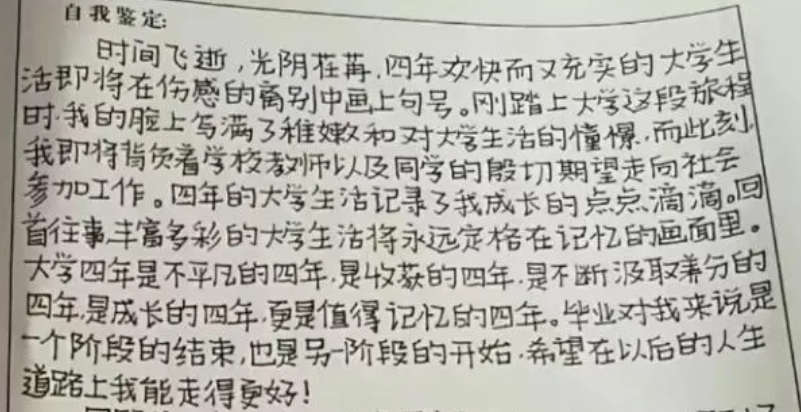 自我鉴定:
时间飞逝,光阴荏苒,四年欢快而又充实的大学生
活即将在伤感的离别中画上句号。刚踏上大学这段旅程
时,我的脸上写满了稚嫩和对大学生活的憧憬,而此刻,
我即将背负着学校教师以及同学的殷切期望走向社会
参加工作。四年的大学生活记录了我成长的点点滴滴。回
首往事,丰富多彩的大学生活将永远定格在记忆的画面里。
大学四年是不平凡的四年,是收获的四年,是不断汲取养分的
四年,是成长的四年,更是值得记忆的四年。毕业对我来说是
一个阶段的结束,也是另一阶段的开始,希望在以后的人生
道路上我能走得更好!